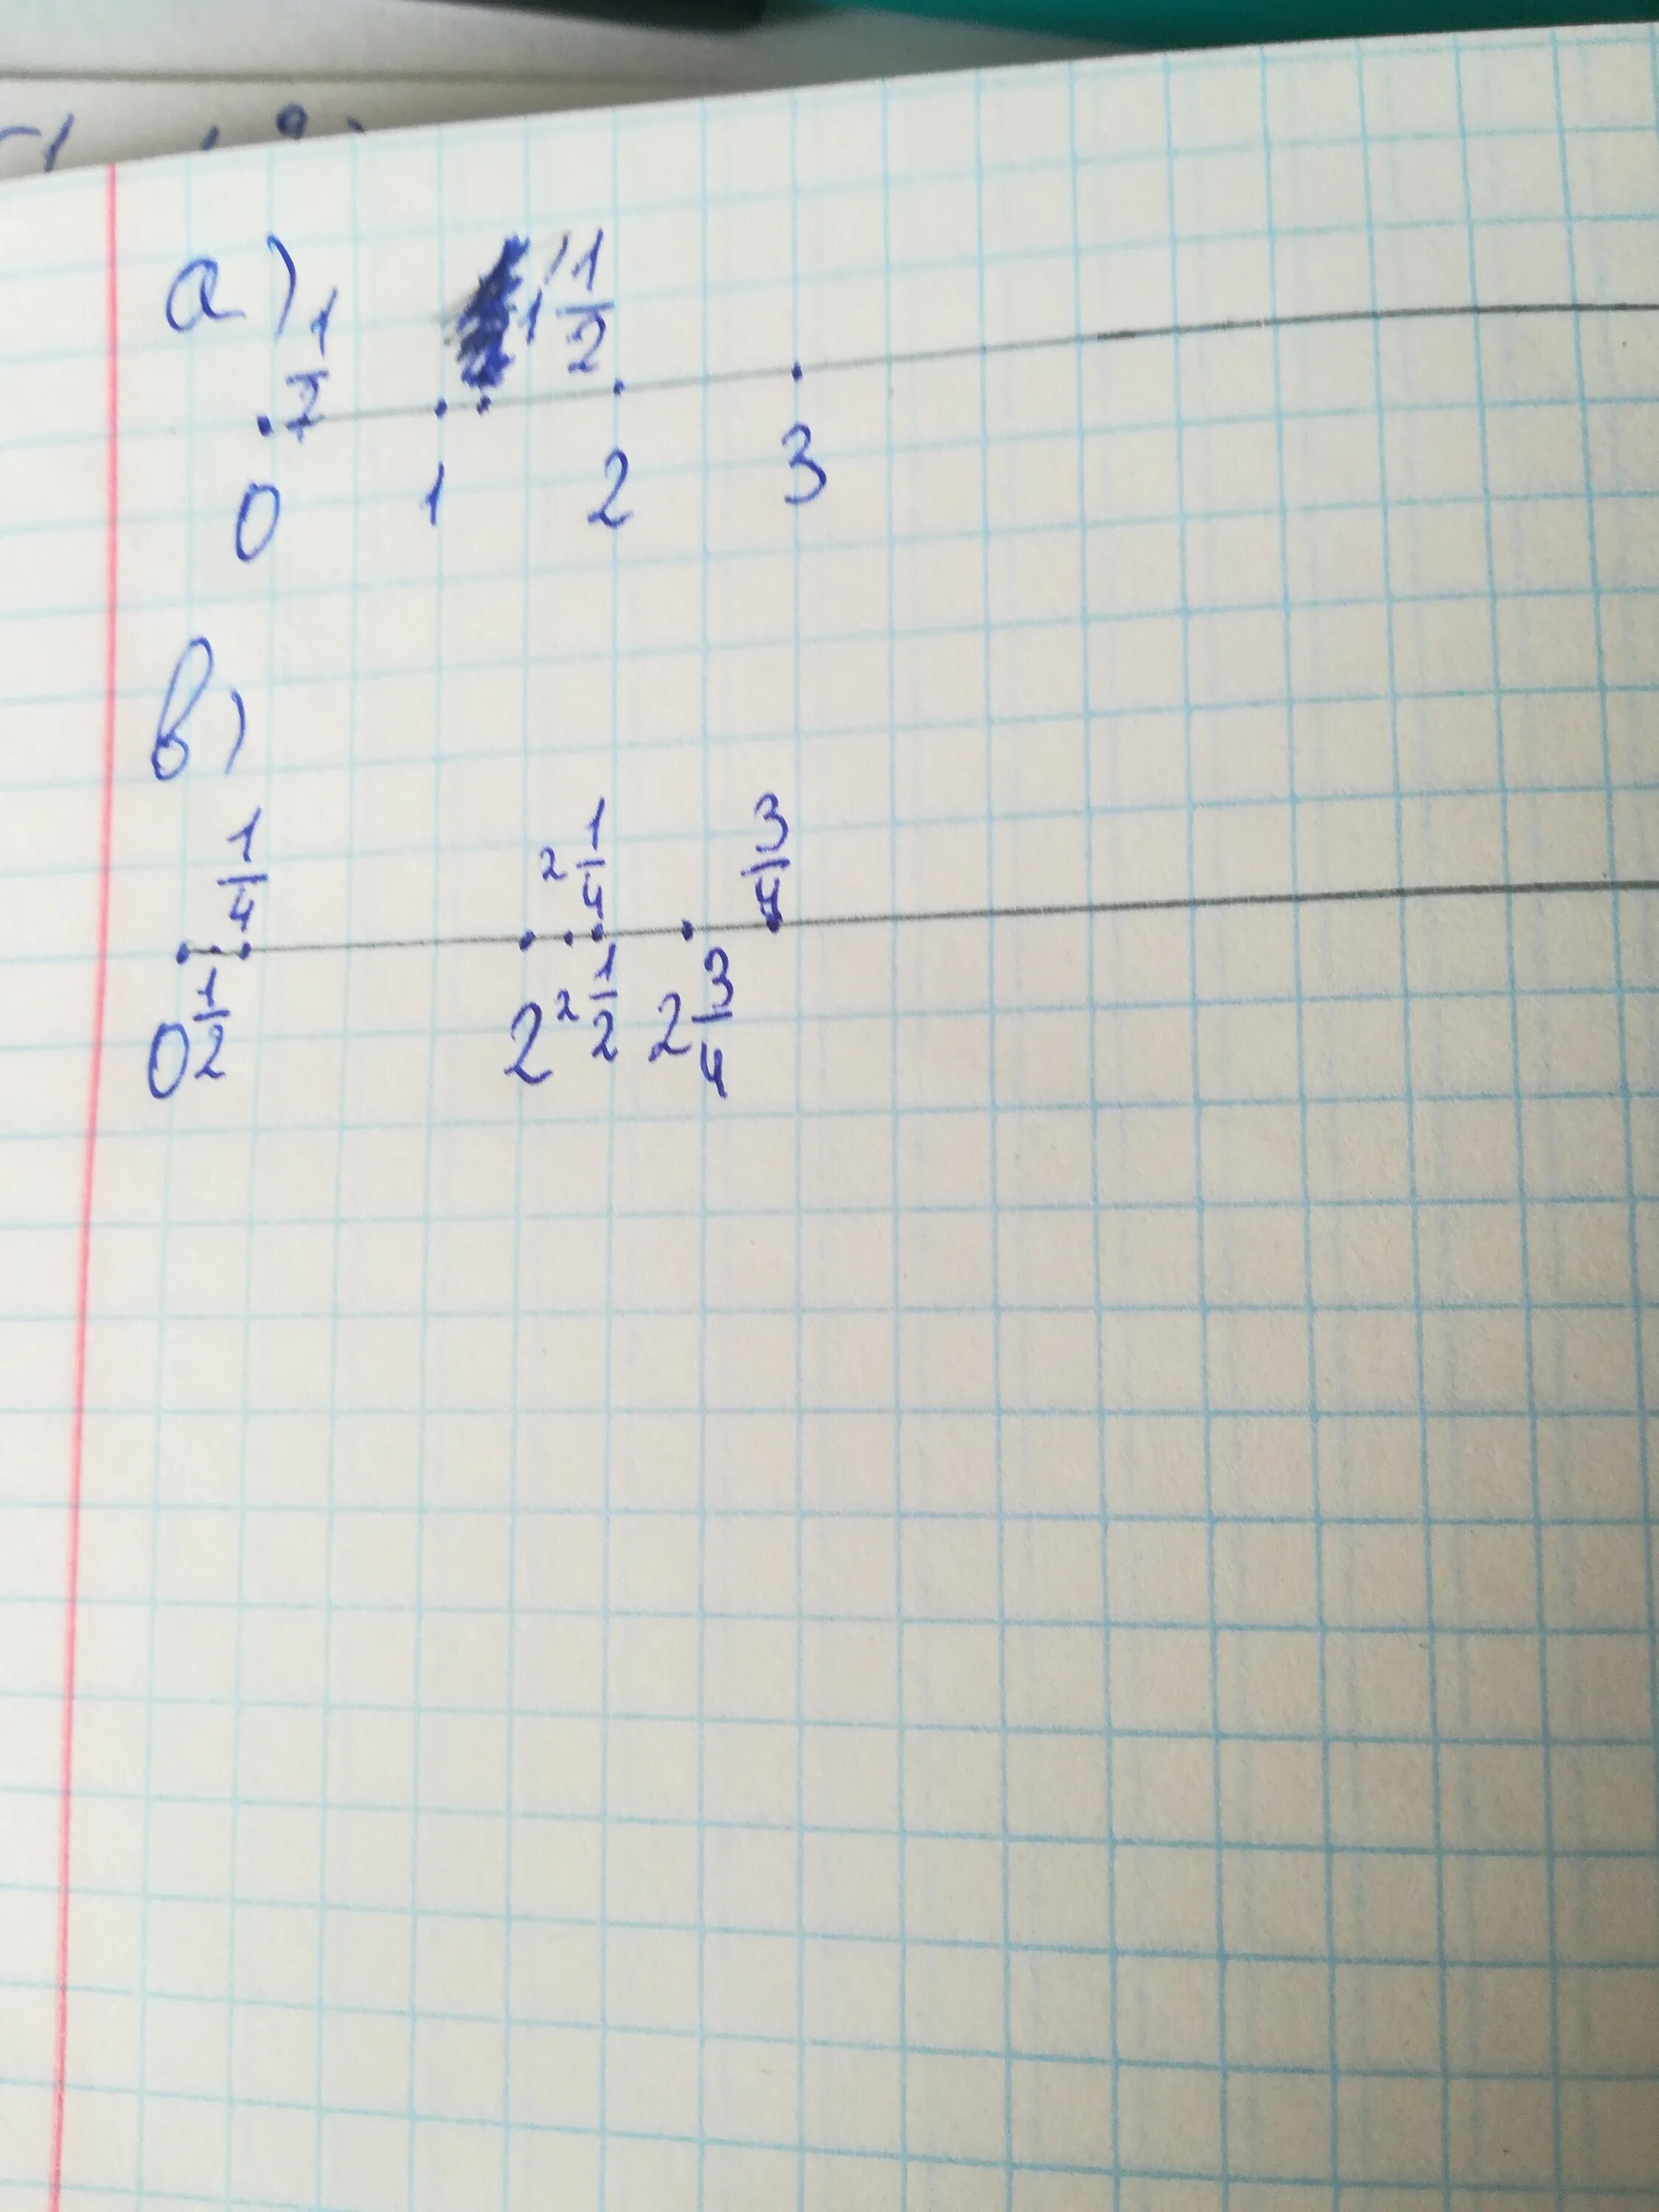 а) 1/2 1 1/2
0 1 2 3
в)
1/4 2 1/4 3/4
0 1/2 2 2 1/2 2 3/4